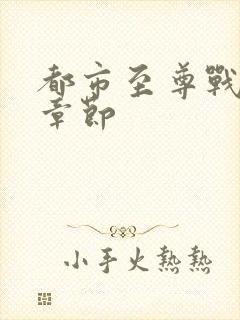 都市至尊戰
章節
小手火熱熱